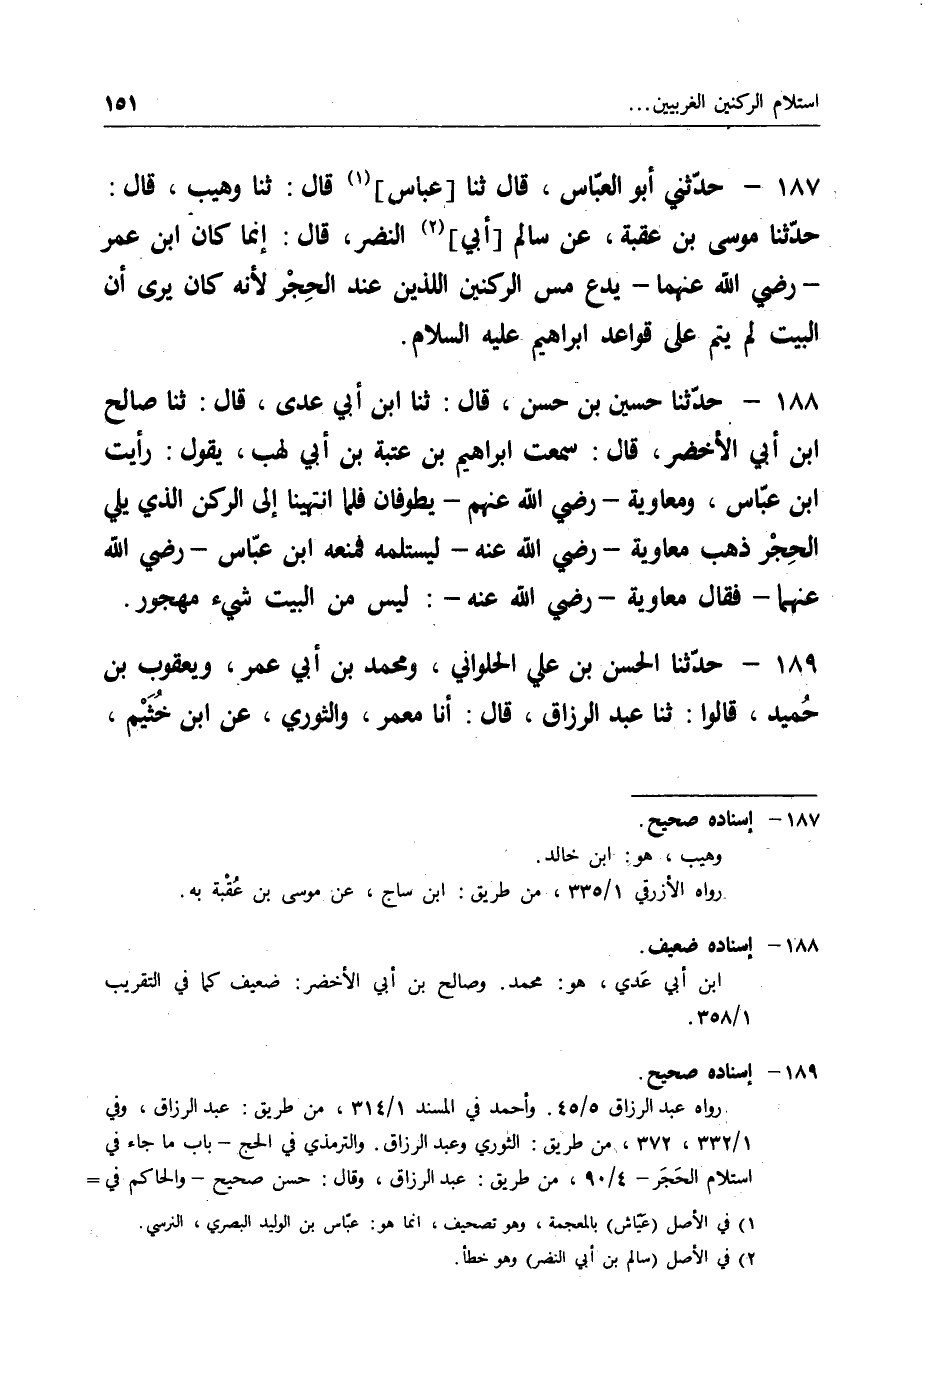 استلام الركنين الغربيين... ١٥١
١٨٧ – حدّثني أبو العبّاس ، قال ثنا [عباس](١) قال : ثنا وهيب ، قال :
حدّثنا موسى بن عقبة ، عن سالم [أبي](٢) النضر ، قال : إنما كان ابن عمر
– رضي الله عنهما – يدع مس الركنين اللذين عند الحِجْر لأنه كان يرى أن
البيت لم يتم على قواعد ابراهيم عليه السلام .
١٨٨ – حدّثنا حسين بن حسن ، قال : ثنا ابن أبي عدى ، قال : ثنا صالح
ابن أبي الأخضر ، قال : سمعت ابراهيم بن عتبة بن أبي لهب ، يقول : رأيت
ابن عبّاس ، ومعاوية – رضي الله عنهم – يطوفان فلما انتهينا إلى الركن الذي يلي
الحِجْر ذهب معاوية – رضي الله عنه – ليستلمه فمنعه ابن عبّاس – رضي الله
عنهما – فقال معاوية – رضي الله عنه – : ليس من البيت شيء مهجور .
١٨٩ – حدّثنا الحسن بن علي الحلواني ، ومحمد بن أبي عمر ، ويعقوب بن
حُميد ، قالوا : ثنا عبد الرزاق ، قال : أنا معمر ، والثوري ، عن ابن خُثَيْم ،
١٨٧ – إسناده صحيح .
وهيب ، هو : ابن خالد .
رواه الأزرقي ٣٣٥/١ ، من طريق : ابن ساج ، عن موسى بن عُقْبة به .
١٨٨ – إسناده ضعيف .
ابن أبي عَدي ، هو : محمد . وصالح بن أبي الأخضر : ضعيف كما في التقريب
٣٥٨/١ .
١٨٩ – إسناده صحيح .
رواه عبد الرزاق ٤٥/٥ . وأحمد في المسند ٣١٤/١ ، من طريق : عبد الرزاق ، وفي
٣٣٢/١ ، ٣٧٢ ، من طريق : الثوري وعبد الرزاق . والترمذي في الحج – باب ما جاء في
استلام الحَجَر – ٩٠/٤ ، من طريق : عبد الرزاق ، وقال : حسن صحيح – والحاكم في =
١) في الأصل (عيّاش) بالمعجمة ، وهو تصحيف ، انما هو : عبّاس بن الوليد البصري ، النرسي .
٢) في الأصل (سالم بن أبي النضر) وهو خطأ .